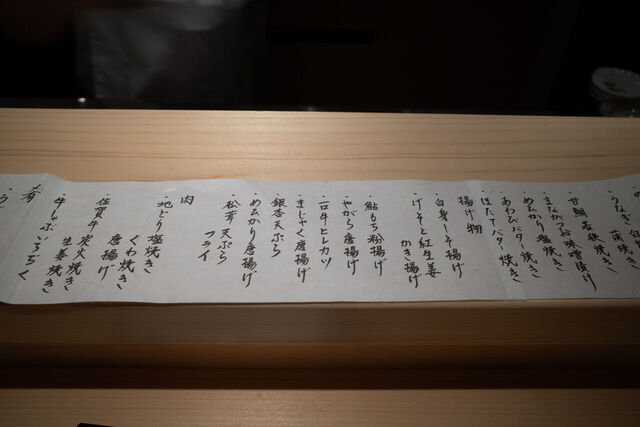 ・うなぎ 白焼き
蒲焼き
・甘鯛若狭焼き
・まながつお味噌漬け
・めひかり塩焼き
・あわびバター焼き
・ほたてバター焼き
揚げ物
・白身しそ揚げ
・げそと紅生姜
かき揚げ
・鮎もち粉揚げ
・やがら唐揚げ
・和牛ヒレカツ
・まじゃく唐揚げ
・銀杏天ぷら
・めひかり唐揚げ
・松茸天ぷら
フライ
肉
・地どり塩焼き
くわ焼き
唐揚げ
・佐賀牛炭火焼き
生姜焼き
・牛しぐいろどく
肴